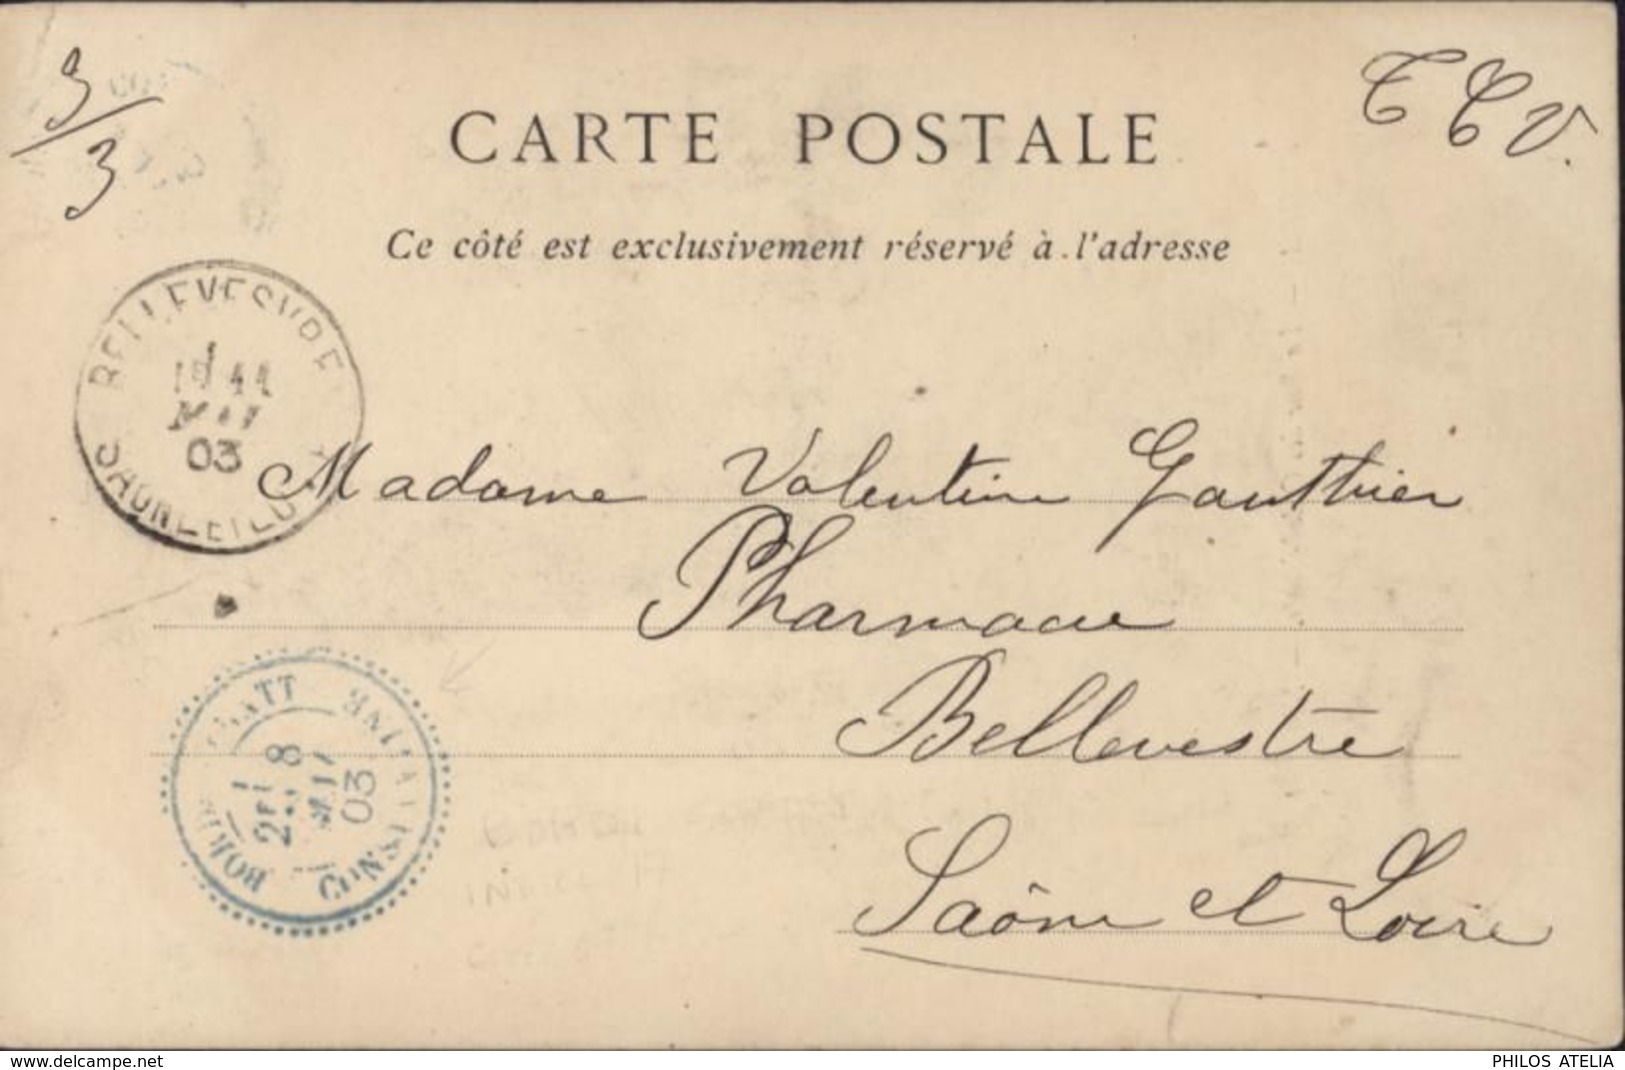 3/3
T C V.
CARTE POSTALE
Ce côté est exclusivement réservé à l'adresse
BELLEVESVRE
11
MAI
03
SAONE ET LOIRE
Madame Valentine Gauthier
Pharmacie
Bellevestre
Saône et Loire
2E
8
MAI
03
CONSTANTINE
www.delcampe.net
PHILOS ATELIA